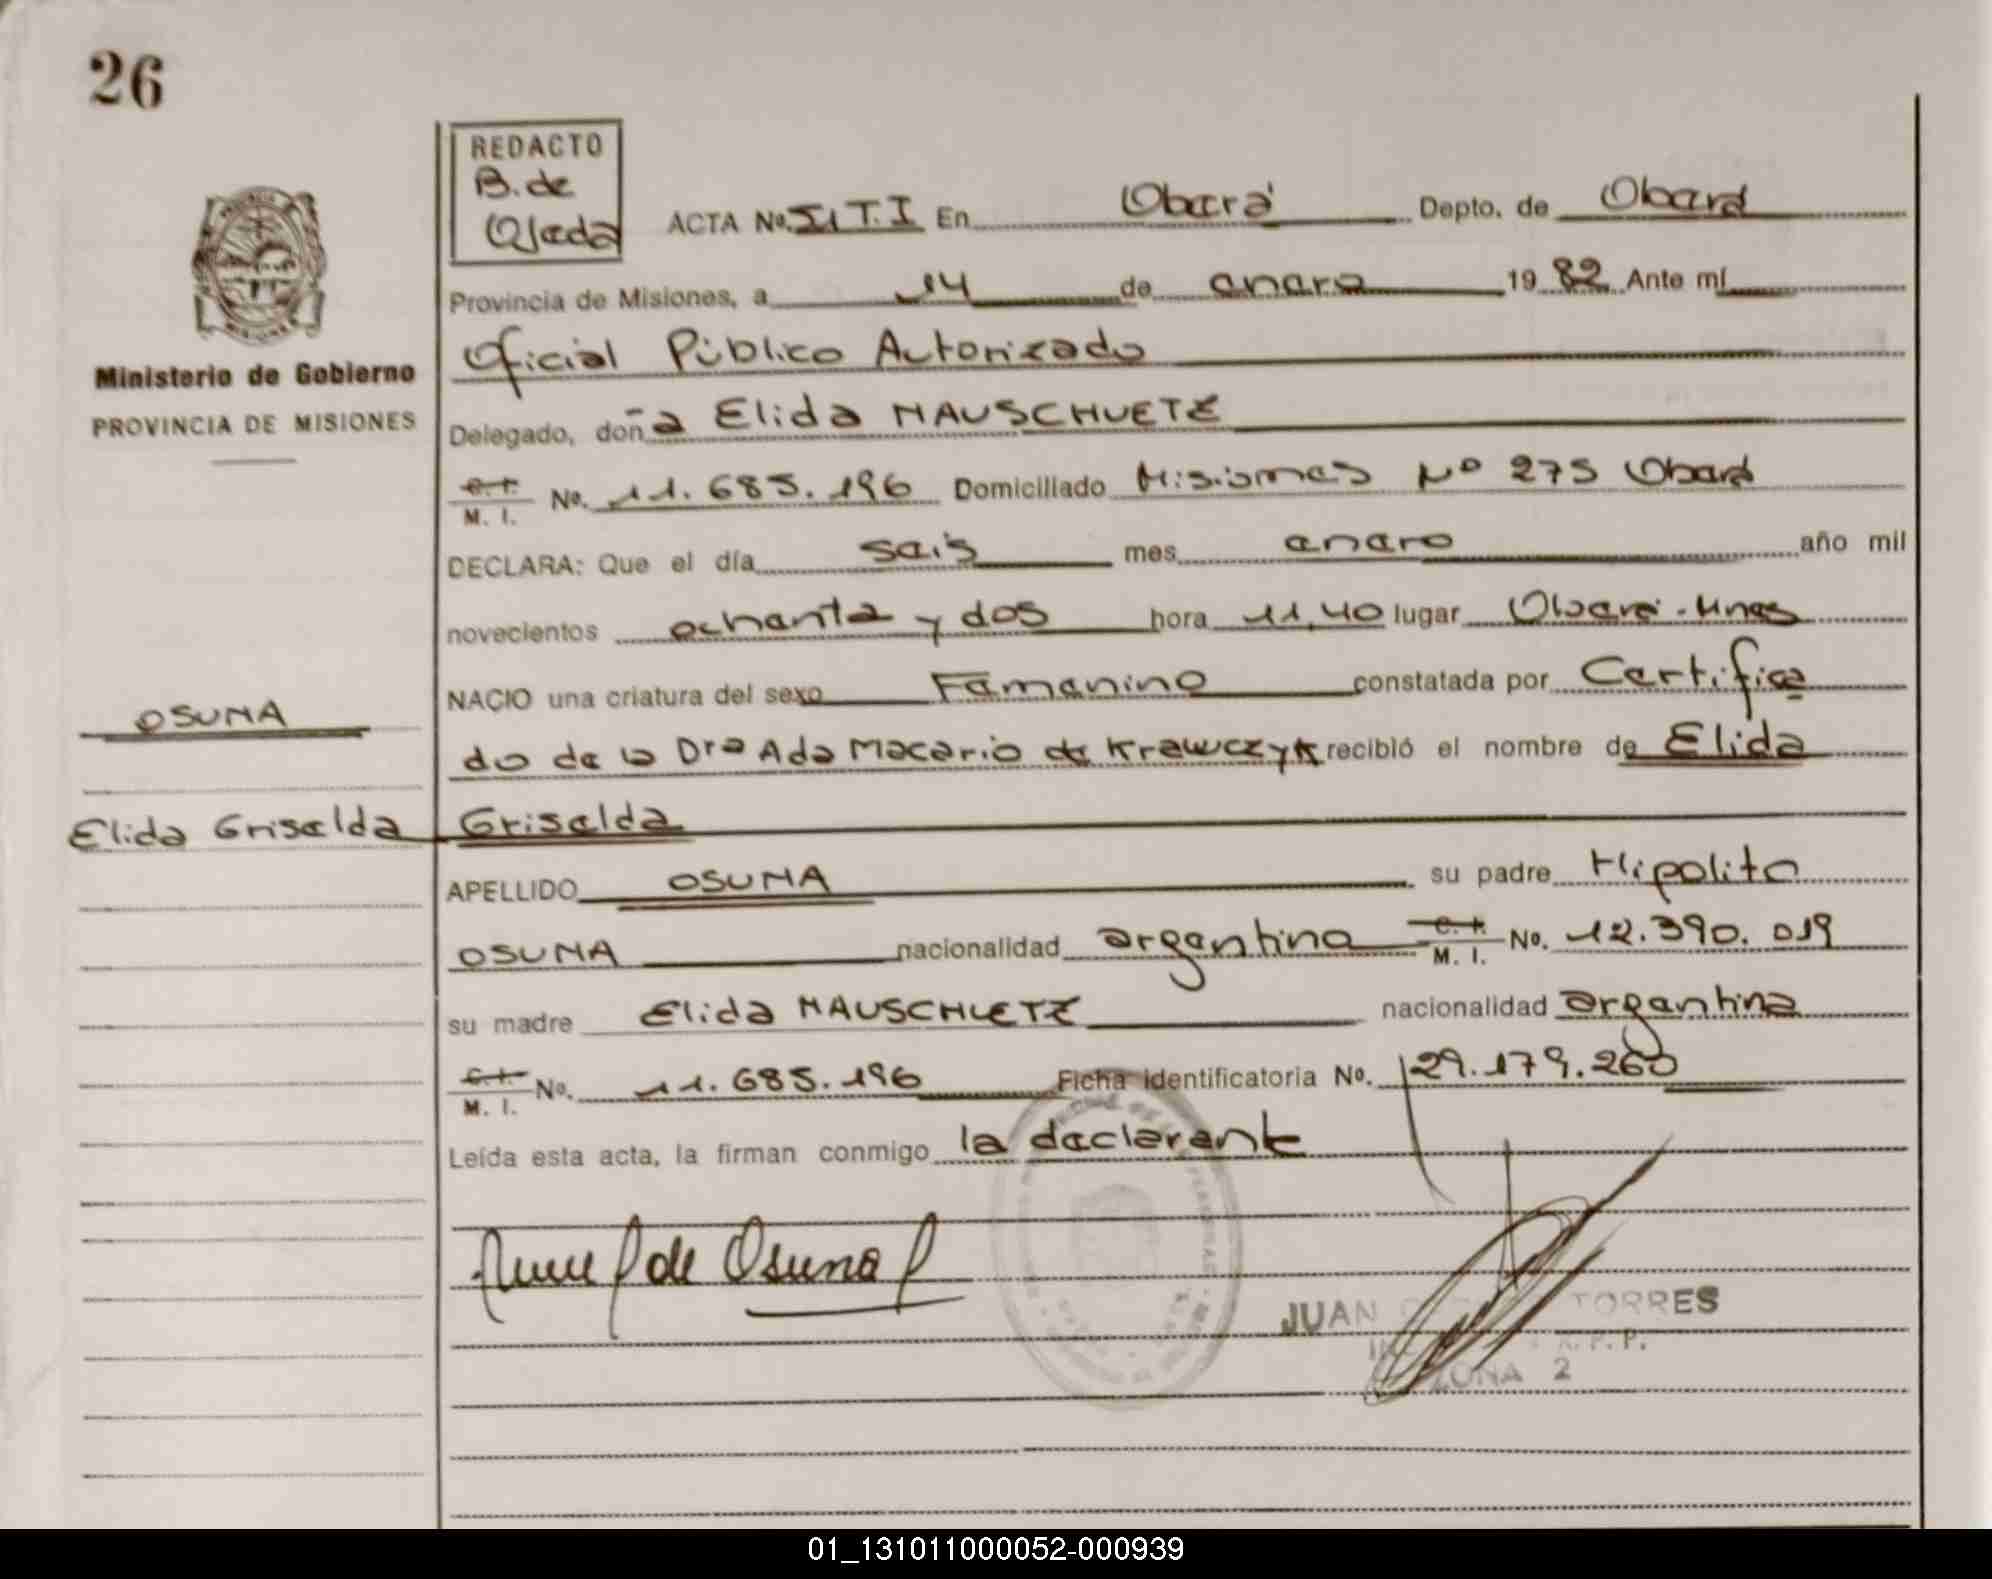 26
REDACTO
B. de
Ojeda
ACTA No. 51 T. I En Oberá Depto. de Oberá
Provincia de Misiones, a 14 de enero 1982 Ante mí
Oficial Público Autorizado
Ministerio de Gobierno
PROVINCIA DE MISIONES
Delegado, doña Elida MAUSCHUETZ
C. I. M. I. No. 11.685.196 Domiciliado Misiones Nº 275 Oberá
DECLARA: Que el día seis mes enero año mil
novecientos ochenta y dos hora 11,40 lugar Oberá-Mnes
NACIO una criatura del sexo Femenino constatada por Certifica
OSUNA
do de la Dra Ada Macario de Krawczyk recibió el nombre de Elida
Elida Griselda
Griselda
APELLIDO OSUNA su padre Hipolito
OSUNA nacionalidad argentina C. I. M. I. No. 12.390.019
su madre Elida MAUSCHUETZ nacionalidad argentina
C. I. M. I. No. 11.685.196 Ficha identificatoria No. 29.179.260
Leída esta acta, la firman conmigo la declarante
de Osuna
JUAN TORRES
ZONA 2
01_131011000052-000939